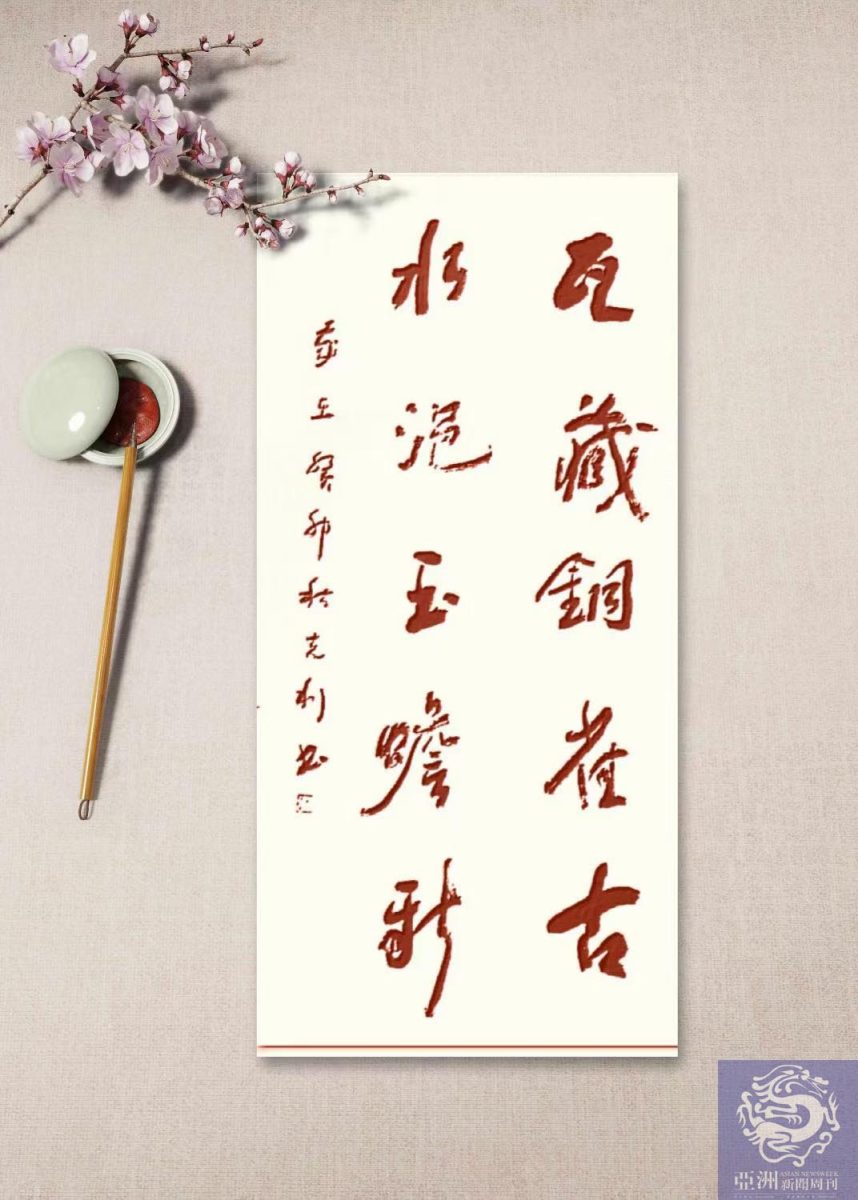 瓦藏銅雀古
水浥玉蟾新
癸卯秋克利书
亞洲
ASIAN NEWSWEEK
新聞周刊